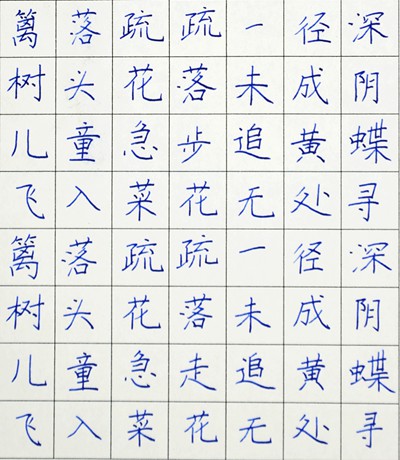 篱落疏疏一径深
树头花落未成阴
儿童急步追黄蝶
飞入菜花无处寻
篱落疏疏一径深
树头花落未成阴
儿童急走追黄蝶
飞入菜花无处寻